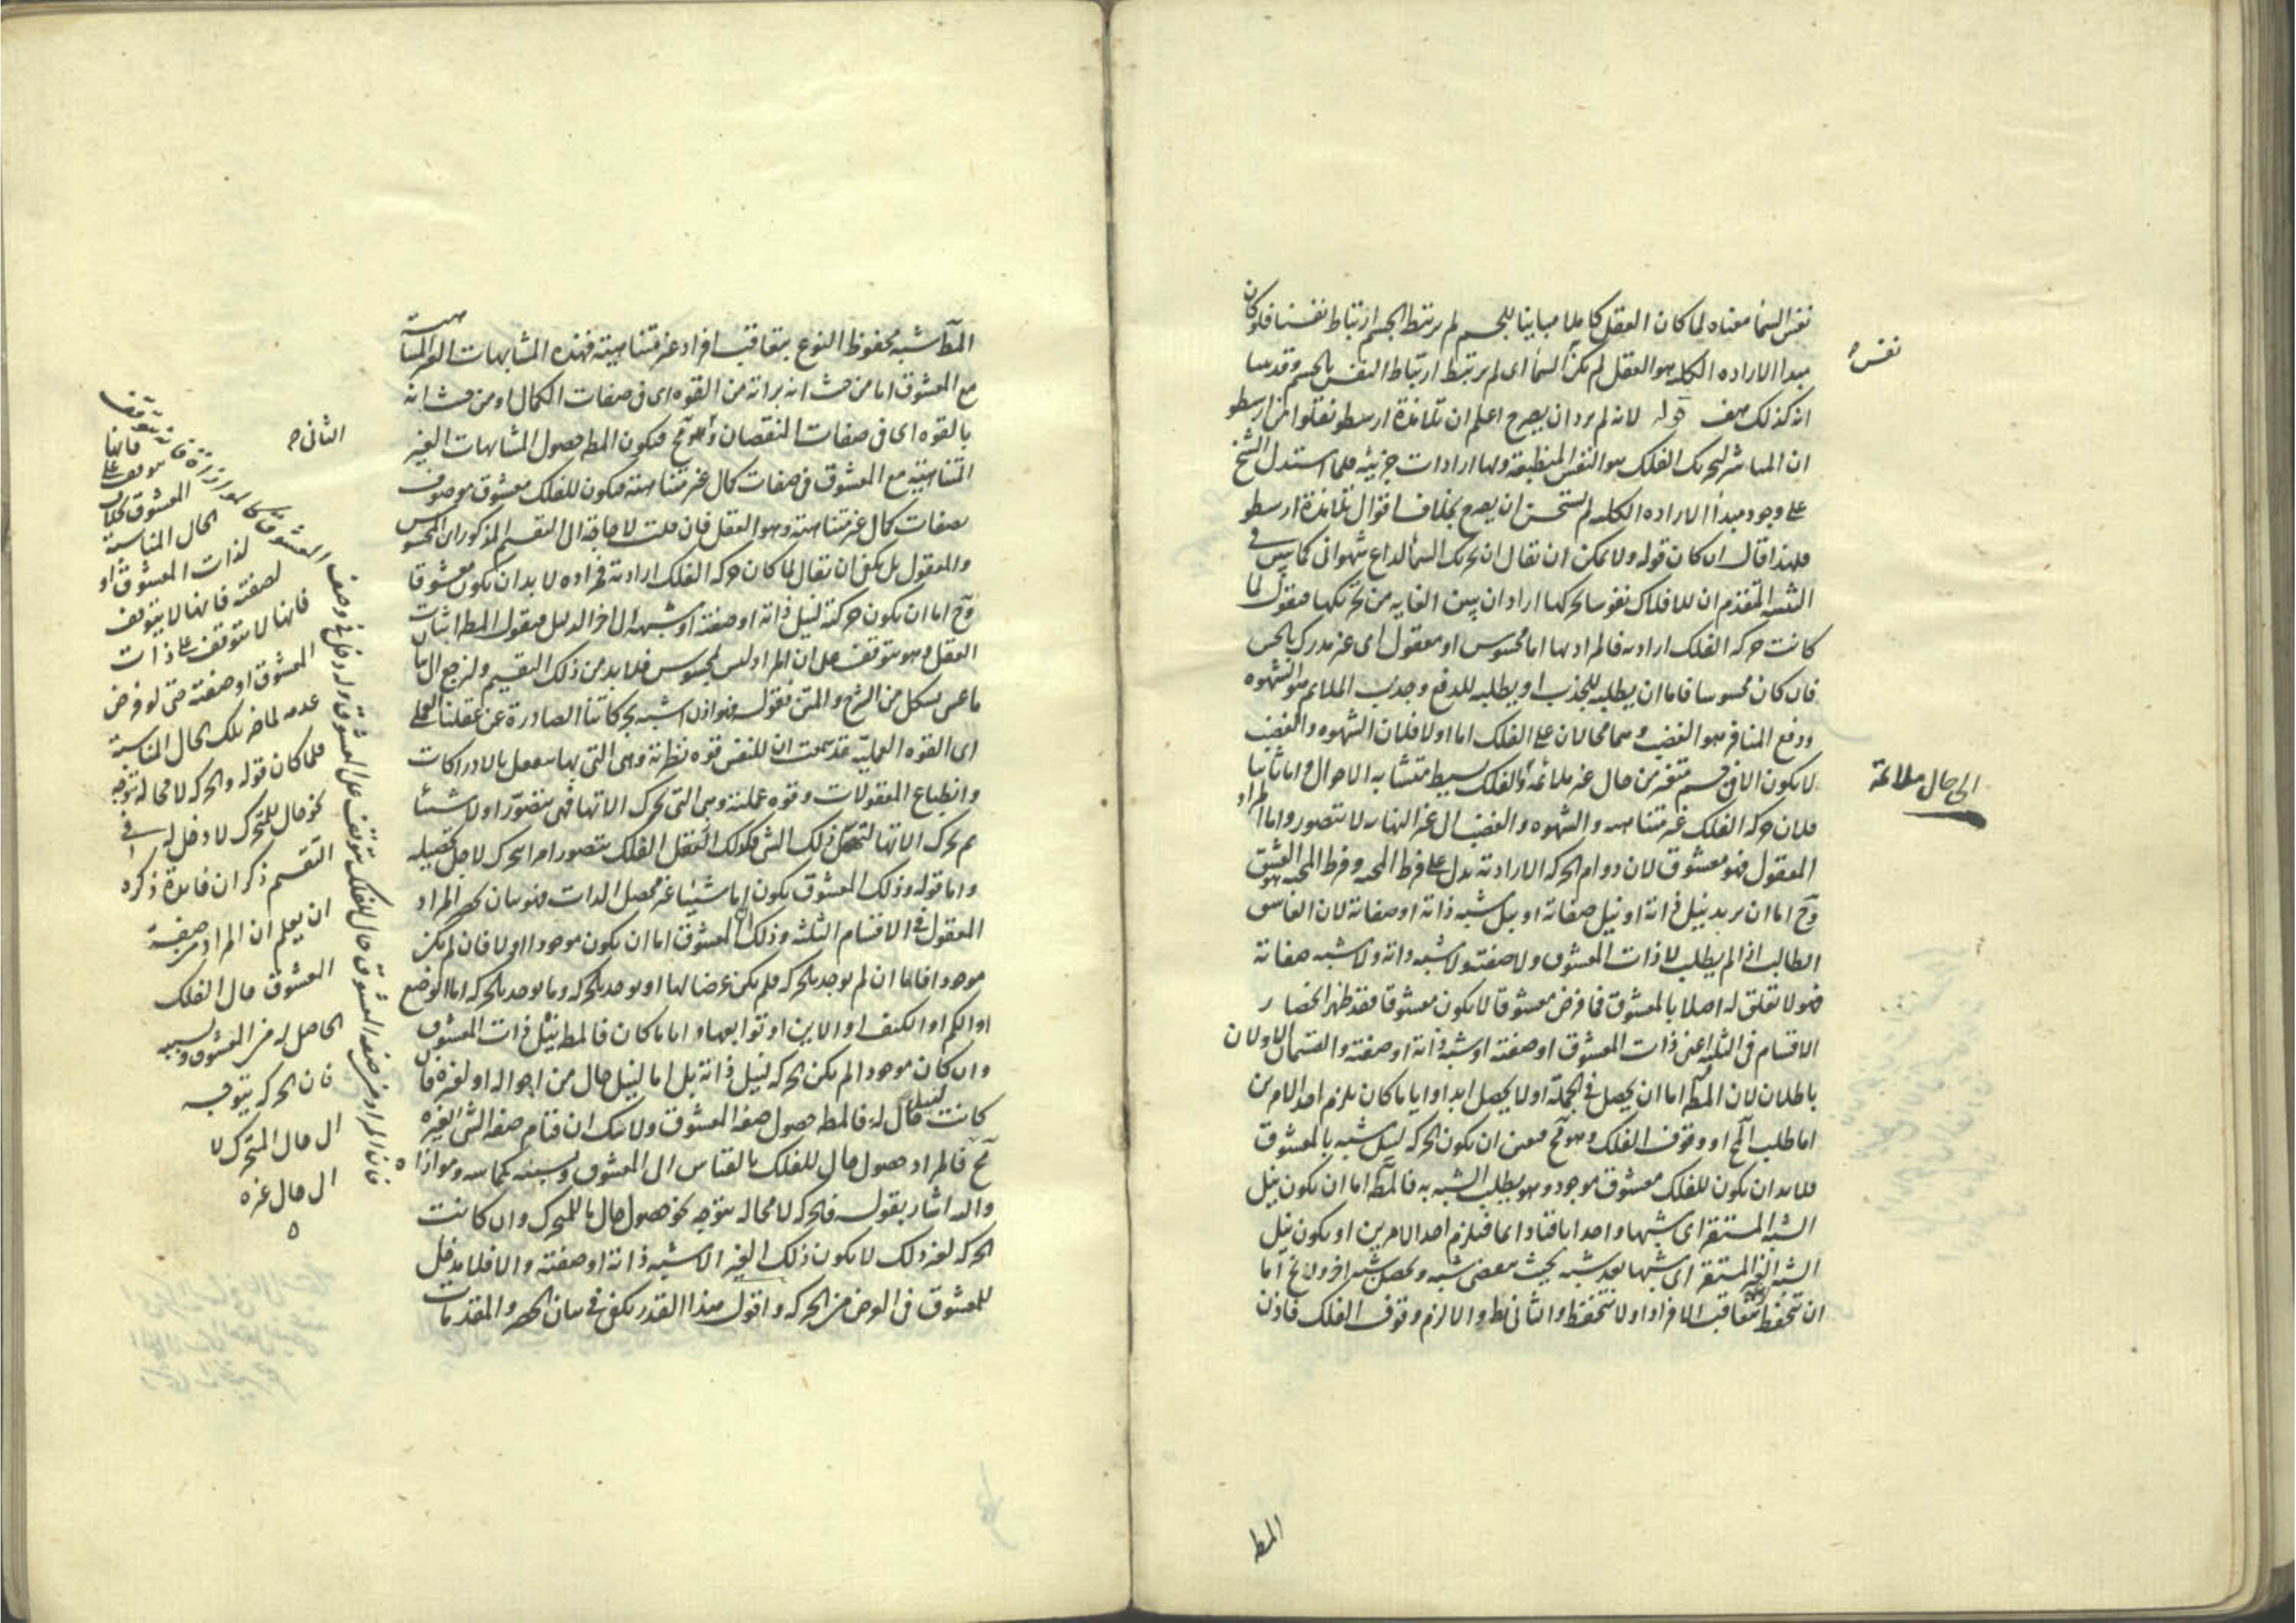 نفس السما معناه لما كان العقل كاملا مباينا للجسم لم يرتبط بالجسم ارتباط نفسنا فلو كان
مبدا الاراده الكليه هو العقل لم يكن السما اى لم يرتبط ارتباط النفس بالجسم وقد بينا
انه كذلك هف قوله لانه لم يرد ان يصرح اعلم ان تلامذة ارسطو نقلوا من ارسطو
ان المباشر لتحريك الفلك هو النفس المنطبعة ولها ارادات جزييه فلما استدل الشيخ
على وجود مبدأ الاراده الكليه لم يستحسن ان يصرح بخلاف اقوال تلامذة ارسطو
فلهذا قال ان كان قوله ولا يمكن ان تقال ان تحريك السما لداع شهوانى لما بين فى
المتقدم ان للافلاك نفوسا تحركها اراد ان يبين الغايه من تحريكها فيقول لما
كانت حركه الفلك اراديه فالمراد بها اما محسوس او معقول اى غير مدرك بالحس
فان كان محسوسا فاما ان يطلبه للجذب او يطلبه للدفع وجذب الملايم هو الشهوه
ودفع المنافر هو الغضب وهما محالان على الفلك اما اولا فلان الشهوه والغضب
لا يكون الا فى جسم متغير من حال غير ملائمه والفلك بسيط متشابه الاحوال واما ثانيا
فلان حركه الفلك غير متناهيه والشهوه والغضب الى غير النهايه لا يتصور واما المراد
المعقول فهو معشوق لان دوام الحركه الاراديه يدل على فرط المحبه وفرط المحبه هو العشق
وح اما ان يريد نيل ذاته او نيل صفاته او نيل شبه ذاته او صفاته لان
الطالب اذا لم يطلب لا ذات المعشوق ولا صفته ولا شبه ذاته ولا شبه صفاته
فهو لا تعلق له اصلا بالمعشوق فما فرض معشوقا لا يكون معشوقا فقد ظهر انحصار
الاقسام فى الثلثه اعنى ذات المعشوق او صفته او شبه ذاته او صفته والقسمان الاولان
باطلان لان المط اما ان يحصل فى الجملة او لا يحصل ابدا وايا ما كان يلزم احد الامرين
اما طلب المح او وقوف الفلك وهو مح فتعين ان يكون الحركه لنيل شبه بالمعشوق
فلا بد ان يكون للفلك معشوق موجود وهو يطلب الشبه به فالمط اما ان يكون نيل
الشبه المستقر اى شبها واحدا باقيا دايما فيلزم احد الامرين او يكون نيل
الشبه الغير المستقر اى شبها بعد شبه بحيث ينقضى شبه ويحصل شبه اخر ولا يخ اما
ان يتحفظ بتعاقب الافراد او لا يتحفظ والثانى بط والا لزم وقوف الفلك فاذن
نفس
الى حال ملائمة
المط
المط شبه محفوظ النوع بتعاقب افراد غير متناهيته فهذه المشابهات الغير المتناهية
مع المعشوق اما من حيث انه براته من القوه اى فى صفات الكمال او من حيث انه
بالقوه اى فى صفات النقصان وهو مح فيكون المط حصول المشابهات الغير
المتناهيه مع المعشوق فى صفات كمال غير متناهيه فيكون للفلك معشوق موصوف
بصفات كمال غير متناهيه وهو العقل فان قلت لا حاجة الى التقسيم المذكور ان المحسوس
والمعقول بل يكفى ان تقال لما كان حركه الفلك اراديه فمراده لا بد ان يكون معشوقا
وح اما ان يكون حركته لنيل ذاته او صفته او شبهه الى اخر الدليل فيقول المط اثبات
العقل وهو متوقف على ان المراد ليس بمحسوس فلا بد من ذلك التقسيم ولنرجع الى
ما عسى يشكل من الشرح والمتن فقوله فهو اذن اشبه بحركاتنا الصادرة عن عقلنا العملى
اى القوه العمليه قد سمعت ان للنفس قوه نظريه وهى التى بها ينفعل بالادراكات
وانطباع المعقولات وقوه عمليه وهى التى تحرك الاتها فهى يتصور اولا شيئا
ثم يحرك الاتها لتحصيل ذلك الشى فكذلك العقل الفلك يتصور امرا يتحرك لاجل تحصيله
واما قوله وذلك المعشوق يكون اما شيئا غير محصل الذات فهو بيان حصر المراد
المعقول فى الاقسام الثلثه وذلك ان المعشوق اما ان يكون موجودا او لا فان لم يكن
موجودا فاما ان لم يوجد بالحركه فلم يكن غرضا لها او يوجد بالحركه وما يوجد بالحركه اما الوضع
او الكم او الكيف او الاين او توابعها وايا ما كان فالمط نيل ذات المعشوق
وان كان موجودا لم يكن الحركه لنيل ذاته بل اما لنيل حال من احواله او لغيره فان
كانت لنيل حال له فالمط حصول صفه المعشوق ولا شك ان قيام صفه الشى بغيره
مح فالمراد حصول حال للفلك بالقياس الى المعشوق وبسببه كمماسه وموازاة
واليه اشار بقوله فالحركه لا محاله يتوجه نحو حصول حال ما للمتحرك وان كانت
الحركه لغير ذلك لا يكون ذلك الغير الا شبه ذاته او صفته والا فلا مدخل
للمعشوق فى الغرض من الحركه واقول هذا القدر يكفى فى بيان الحصر والمقدمات
الثانى
المعشوق بخلاف
الحال المناسبة
لذات المعشوق او
لصفته فانها لا يتوقف
فانها لا تتوقف على ذات
المعشوق او صفته حتى لو فرض
عدمه لما ضر تلك الحال المناسبة
فلما كان قوله والحركه لا محاله يتوجه
نحو حال للمتحرك لا دخل له فى
التقسيم ذكر ان فايدة ذكره
ان يعلم ان المراد من صفة
المعشوق حال الفلك
الحاصل له من المعشوق وبسببه
فان الحركه يتوجه
الى حال المتحرك لا
الى حال غيره